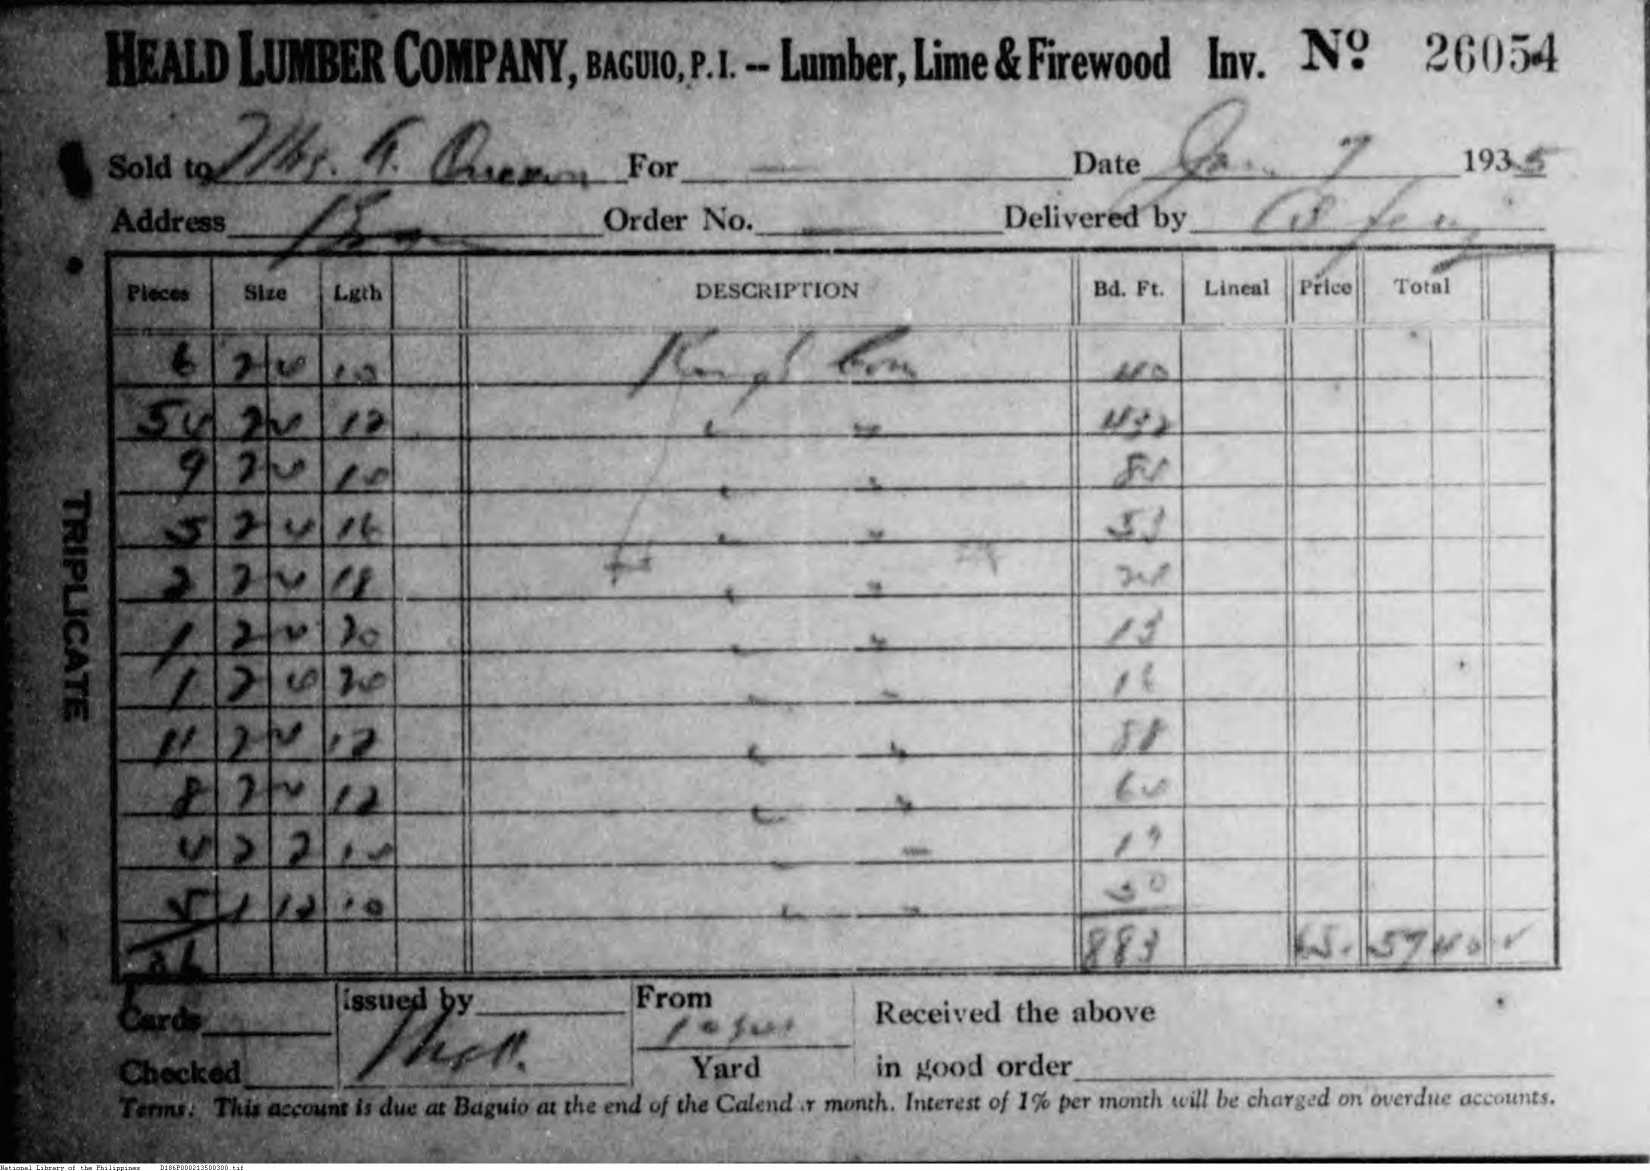 HEALD LUMBER COMPANY, BAGUIO, P. I. -- Lumber, Lime & Firewood Inv. Nº 26054
Sold to Mrs. A. For — Date Jan. 7 1935
Address Order No. — Delivered by
Pieces Size Lgth DESCRIPTION Bd. Ft. Lineal Price Total
6 2 4 10 Rough 40
54 2 4 12 " " 432
9 2 4 " "
5 2 4 16 " " 53
2 2 4 18 " " 24
1 2 4 20 " " 13
1 2 20 " " 16
11 2 4 12 " " 88
8 2 4 12 " " 64
4 2 2 " "
5 1 12 10 " " 50
883 65. 57 40
TRIPLICATE
Cards issued by From
Checked Yard
Received the above
in good order
Terms: This account is due at Baguio at the end of the Calend r month. Interest of 1% per month will be charged on overdue accounts.
National Library of the Philippines D186P000213500300.tif